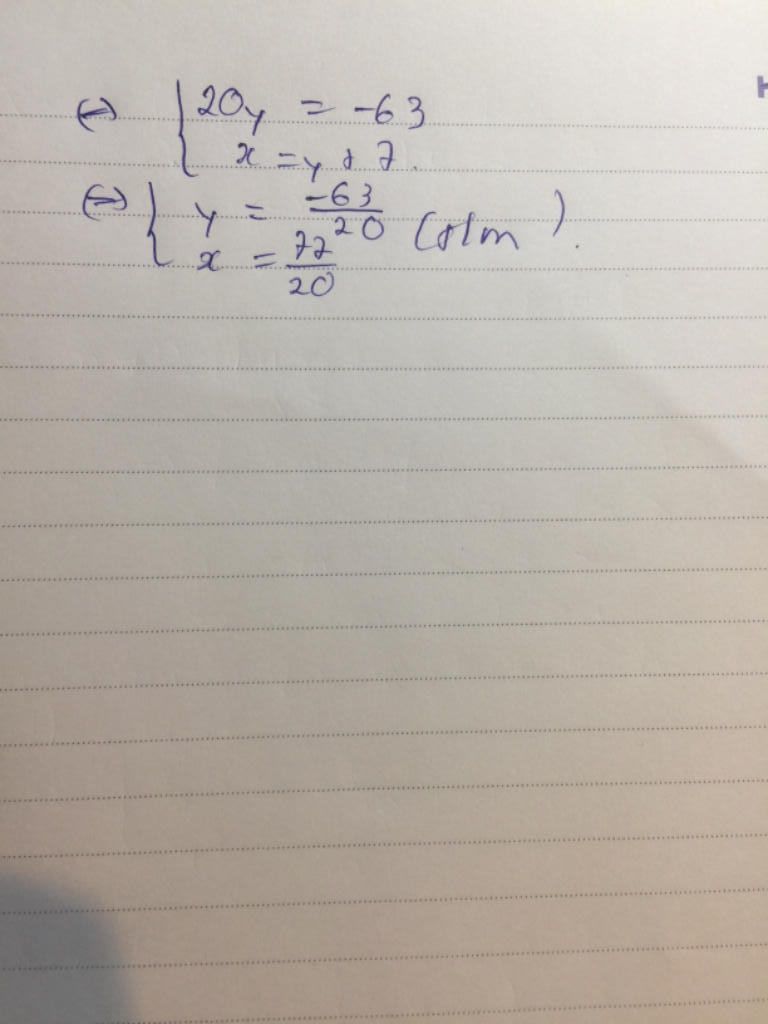 ⇔ { 20y = -63
x = y + 7.
⇔ { y = -63/20
x = 77/20 (t/m).